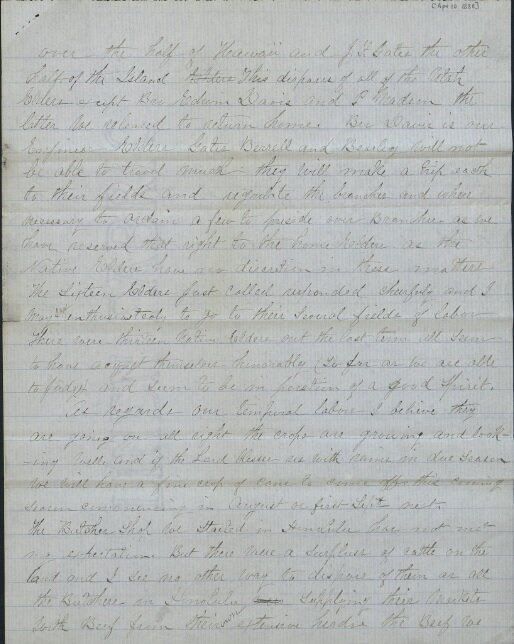 [Apr 10 1880]
over the half of Hoawaii and J F Gates the other
half of the Island This disposes of all of the Utah
Elders except Bro Edwin Davis and P Madson the
latter we released to return home. Bro Davis is our
Engineer Elders Gates Burrell and Beesley will not
be able to travel much they will make a trip each
to their fields and regulate the branches and where
necessary to ordain a few to preside over Branches as we
have reserved that right to the home Elders as the
Native Elders have no discretion in these matters
The Sixteen Elders just called responded cheerfully and I
may enthusiasticaly to go to their several fields of labor
There were thirteen Native Elders out the last term all seem
to have acquit themselves honorably (so far as we are able
to judge) and seem to be in possession of a good spirit.
As regards our temporal labors I believe they
are going on all right the crops are growing and look-
-ing well, and if the Lord blesses us with rains in due season
we will have a fine crop of cane to come off this coming
season commencing in August or first Sept next.
The Butcher Shop we started in Honolulu has not met
my expectation. But there were a surpluss of cattle on the
land and I see no other way to dispose of them as all
the Butchers in Honolulu supplying their Markets
with Beef from their own extensive herds the Beef we